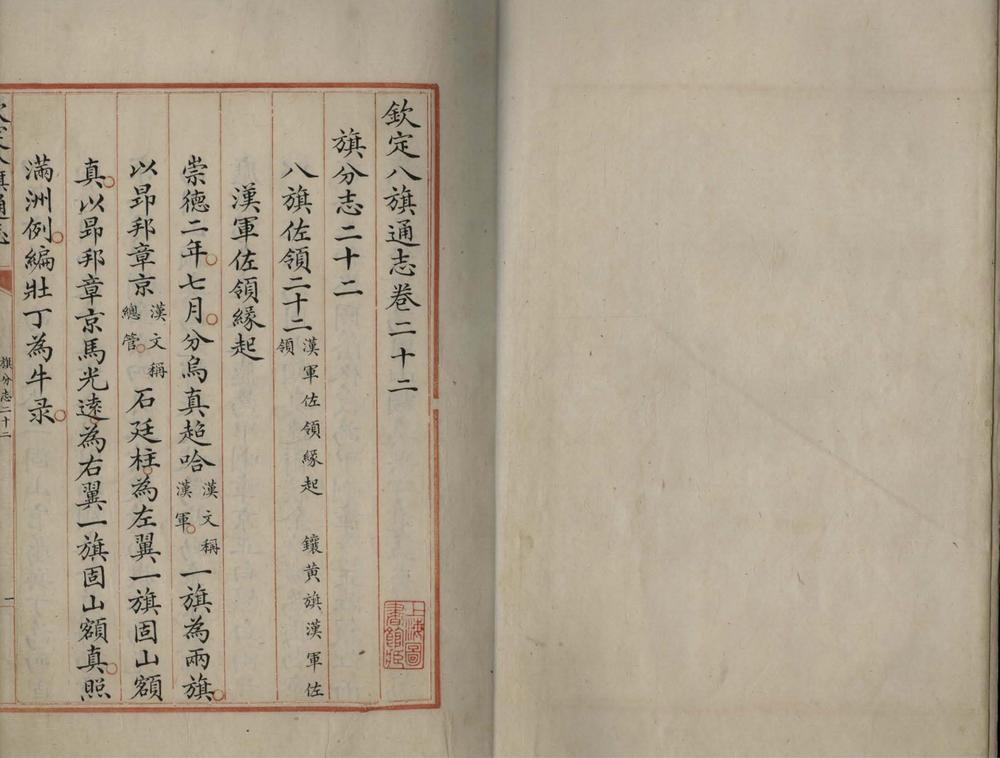 欽定八旗通志卷二十二
旗分志二十二
八旗佐領二十二漢軍佐領緣起 鑲黃旗漢軍佐領
漢軍佐領緣起
崇德二年七月分烏真超哈漢文稱漢軍一旗為兩旗
以昂邦章京漢文稱總管石廷柱為左翼一旗固山額
真以昂邦章京馬光遠為右翼一旗固山額真照
滿洲例編壯丁為牛录
上海圖書館藏
旗分志二十二
一